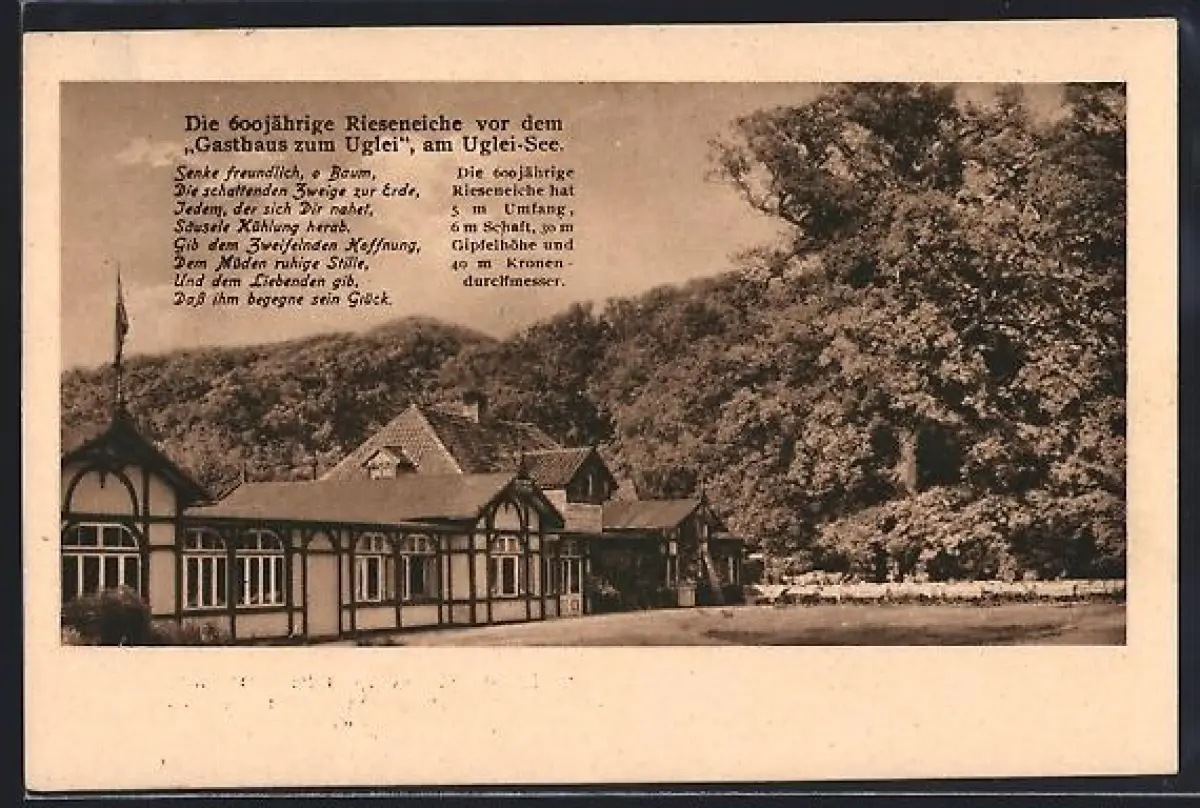 Die 600jährige Rieseneiche vor dem
„Gasthaus zum Uglei", am Uglei-See.
Senke freundlich, o Baum,
Die schattenden Zweige zur Erde,
Jedem, der sich Dir nahet,
Säusele Kühlung herab.
Gib dem Zweifelnden Hoffnung,
Dem Müden ruhige Stille,
Und dem Liebenden gib,
Daß ihm begegne sein Glück.
Die 600jährige
Rieseneiche hat
5 m Umfang,
6 m Schaft, 30 m
Gipfelhöhe und
40 m Kronen-
durchmesser.